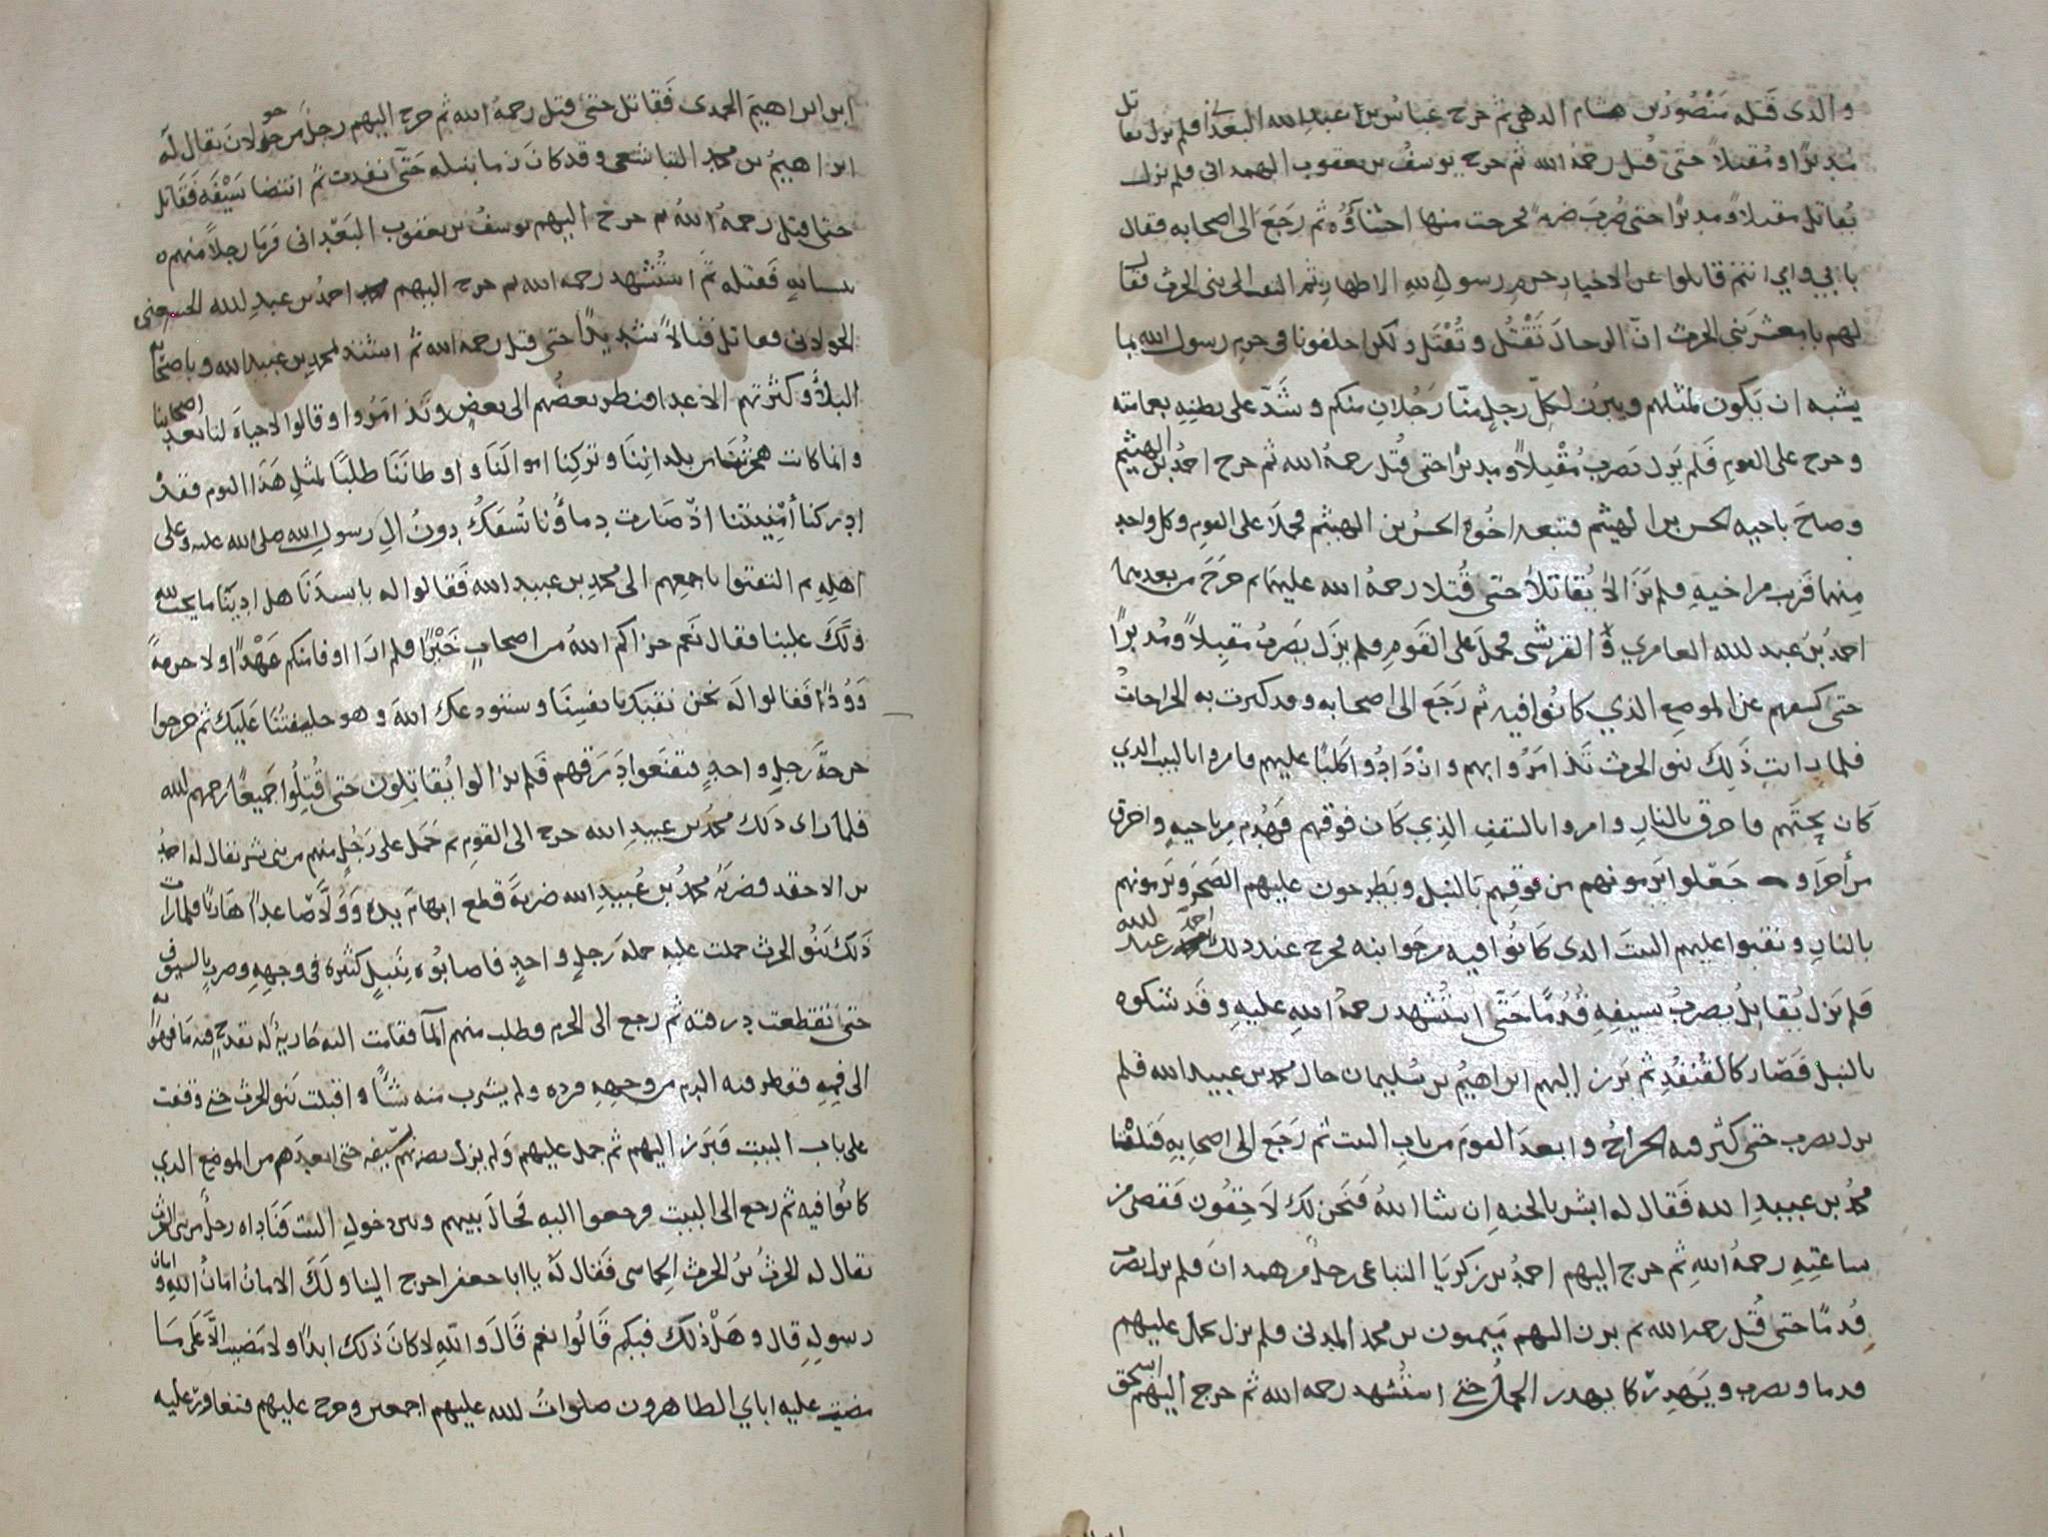 والذي قتله منصور بن هشام الدهمي ثم خرج عباس بن عبد الله البغدا فلم يزل يقاتل
مدبرًا ومقبلاً حتى قتل رحمه الله ثم خرج يوسف بن يعقوب الهمداني فلم يزل
يقاتل مقبلاً ومدبرًا حتى ضرب ضربة خرجت منها احشاؤه ثم رجع الى اصحابه فقال
بابي وامي انتم قاتلوا عن الاخيار حرم رسول الله الاطهار ثم التفت الى بني الحرث فقال
لهم يا معشر بني الحرث ان الرجال تَقْتُل وتُقْتَل ولكن اخلفونا في حرم رسول الله بما
يشبه ان يكون لمثلهم ويبرز لكل رجل منّا رجلان منكم وشدّ على بطنه بعمامته
وخرج على القوم فلم يزل يضرب مقبلاً ومدبرًا حتى قتل رحمه الله ثم خرج احمد بن الهيثم
وصاح باخيه الحسن بن الهيثم فتبعه اخوه الحسن بن الهيثم فحملا على القوم وكل واحد
منهما قرب من اخيه فلم يزالا يقاتلا حتى قُتلا رحمة الله عليهما ثم خرج من بعدهما
احمد بن عبد الله العامري القرشي فحمل على القوم فلم يزل يضرب مقبلاً ومدبرًا
حتى كشفهم عن الموضع الذي كانوا فيه ثم رجع الى اصحابه وقد كثرت به الجراحات
فلما رات ذلك بنو الحرث تذامروا بهم وازدادوا كلبًا عليهم وامروا بالبيت الذي
كان تحتهم فاحرق بالنار وامروا بالسقف الذي كان فوقهم فهدم من ناحيه واحرق
من أخرا وجعلوا يرمونهم من فوقهم بالنبل ويطرحون عليهم الصخر ويرمونهم
بالنار ونقبوا عليهم البيت الذي كانوا فيه من جوانبه فخرج عند ذلك احمد بن عبد الله
فلم يزل يقاتل يضرب بسيفه قدمًا حتى استشهد رحمة الله عليه وقد شكوه
بالنبل فصار كالقنفد ثم برز اليهم ابراهيم بن سليمان خال محمد بن عبيد الله فلم
يزل يضرب حتى كثر فيه الجراح وابعد القوم من باب البيت ثم رجع الى اصحابه فتلقا
محمد بن عبيد الله فقال له ابشر بالجنه ان شا الله فنحن لك لاحقون فقضى من
ساعته رحمه الله ثم خرج اليهم احمد بن زكريا التباعي رجل من همدان فلم يزل يضرب
قدمًا حتى قُتل رحمه الله ثم برز اليهم ميمون بن محمد المدني فلم يزل يحمل عليهم
قدما ويضرب ويهدر كا يهدر الجمل حتى استشهد رحمه الله ثم خرج اليهم اسحق
ابن ابراهيم الحمدي فقاتل حتى قتل رحمه الله ثم خرج اليهم رجل من خولان يقال له
ابراهيم بن محمد التباشعي وقد كان رما بنبله حتى نفدت ثم انتضا سيفه فقاتل
حتى قتل رحمه الله ثم خرج اليهم يوسف بن يعقوب البغداني فرما رجلاً منهم
فقتله ثم استشهد رحمه الله ثم خرج اليهم احمد بن عبد الله
الخولاني فقاتل قتالاً شديدًا حتى قتل رحمه الله ثم اشتد لمحمد بن عبيد الله وباصحابه
البلا وكثرتهم الاعدا فنظر بعضهم الى بعض وتذامروا وقالوا لا حياة لنا بعد اصحابنا
وانما كانت هجرتنا من بلداننا وتركنا اموالنا واوطاننا طلبًا لمثل هذا اليوم فقد
ادركنا أمنيتنا اذ صارت دماؤنا تُسفك دون ال رسول الله صلى الله عليه وعلى
اهله ثم التفتوا باجمعهم الى محمد بن عبيد الله فقالوا له يا سيدنا هل ادينا ما يجب لله
ولك علينا فقال نعم جزاكم الله من اصحاب خيرًا فلم ارا اوفا منكم عهدًا ولا حرمةً
وودًّا فقالوا له نحن نقيك بانفسنا ونستودعك الله وهو خليفتنا عليك ثم خرجوا
خرجة رجل واحد فتقنعوا درقهم فلم يزالوا يقاتلون حتى قُتِلُوا جميعًا رحمهم الله
فلما راى ذلك محمد بن عبيد الله خرج الى القوم ثم حمل على رجل منهم من بني بشر يقال له احمد
بن الاحقد فضربه محمد بن عبيد الله ضربة قطع ابهام يده وولّا صاعدًا هاربًا فلما رات
ذلك بنو الحرث حملت عليه حملة رجل واحد فاصابوه بنبل كثيره في وجهه وضرب بالسيوف
حتى تقطعت درقته ثم رجع الى الحرم وطلب منهم المآ فقامت اليه جارية له بقدح فيه ما فرفعه
الى فمه فقطر فيه الدم من وجهه فرده ولم يشرب منه شيًّا واقبلت بنو الحرث حتى وقفت
على باب البيت فبرز اليهم ثم حمل عليهم ولم يزل يضربهم بسيفه حتى ابعدهم من الموضع الذي
كانوا فيه ثم رجع الى البيت فرجعوا اليه فحال بينهم وبين دخول البيت فناداه رجل من بني الحرث
يقال له الحرث بن الحرث الحماسي فقال له يا ابا جعفر اخرج الينا ولك الامان امان الله وامان
رسوله قال وهل ذلك فيكم قالوا نعم قال والله لا كان ذلك ابدًا ولا مضيت الا على ما
مضى عليه اباي الطاهرون صلوات الله عليهم اجمعين وخرج عليهم فتعاور عليه